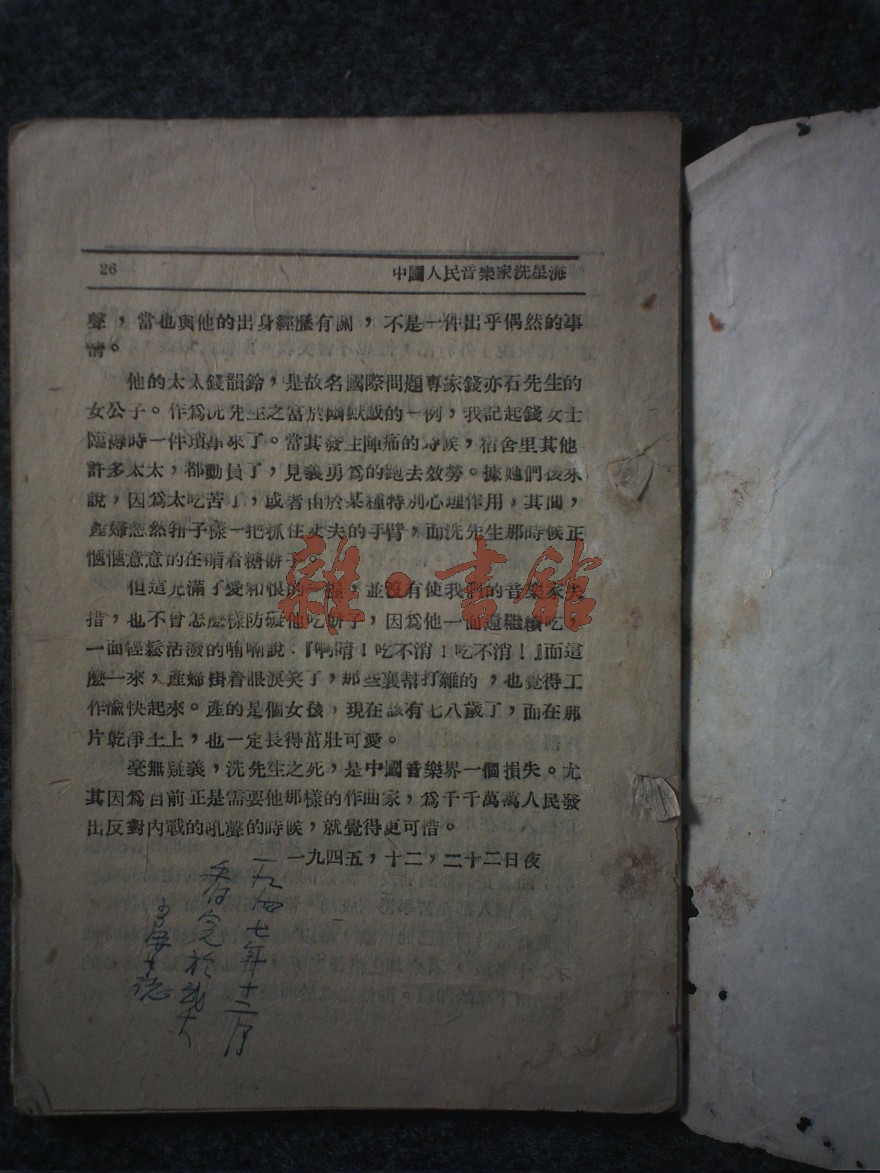 26
中國人民音樂家洗星海
聲，當也與他的出身經歷有關，不是一件出乎偶然的事
情。
他的太太錢韻鈴，是故名國際問題專家錢亦石先生的
女公子。作爲洗先生之富於幽默感的一例，我記起錢女士
臨褥時一件瑣事來了。當其發生陣痛的時候，宿舍里其他
許多太太，都動員了，見義勇爲的跑去效勞。據她們後來
說，因爲太吃苦了，或者由於某種特別心理作用，其間，
產婦忽然鉗子樣一把抓住丈夫的手臂，而洗先生那時候正
愜愜意意的在啃着糖餅子。
但這充滿了愛和恨的一握，並沒有使我們的音樂家失
措，也不曾怎麼樣防礙他吃餅子，因爲他一面還繼續吃，
一面輕鬆活潑的喃喃說：『啊唷！吃不消！吃不消！』而這
麼一來，產婦掛着眼淚笑了，那些襄幫打雜的，也覺得工
作愉快起來。產的是個女孩，現在該有七八歲了，而在那
片乾淨土上，也一定長得茁壯可愛。
毫無疑義，洗先生之死，是中國音樂界一個損失。尤
其因爲目前正是需要他那樣的作曲家，爲千千萬萬人民發
出反對內戰的吼聲的時候，就覺得更可惜。
一九四五，十二，二十二日夜
一九四七年十二月
看完於武大
雜·書館